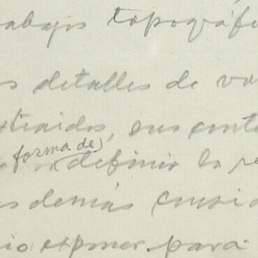 trabajos topográfi
s detalles de va
xtraidos, sus conto
forma de
definir la re
s demás consid
io exponer para